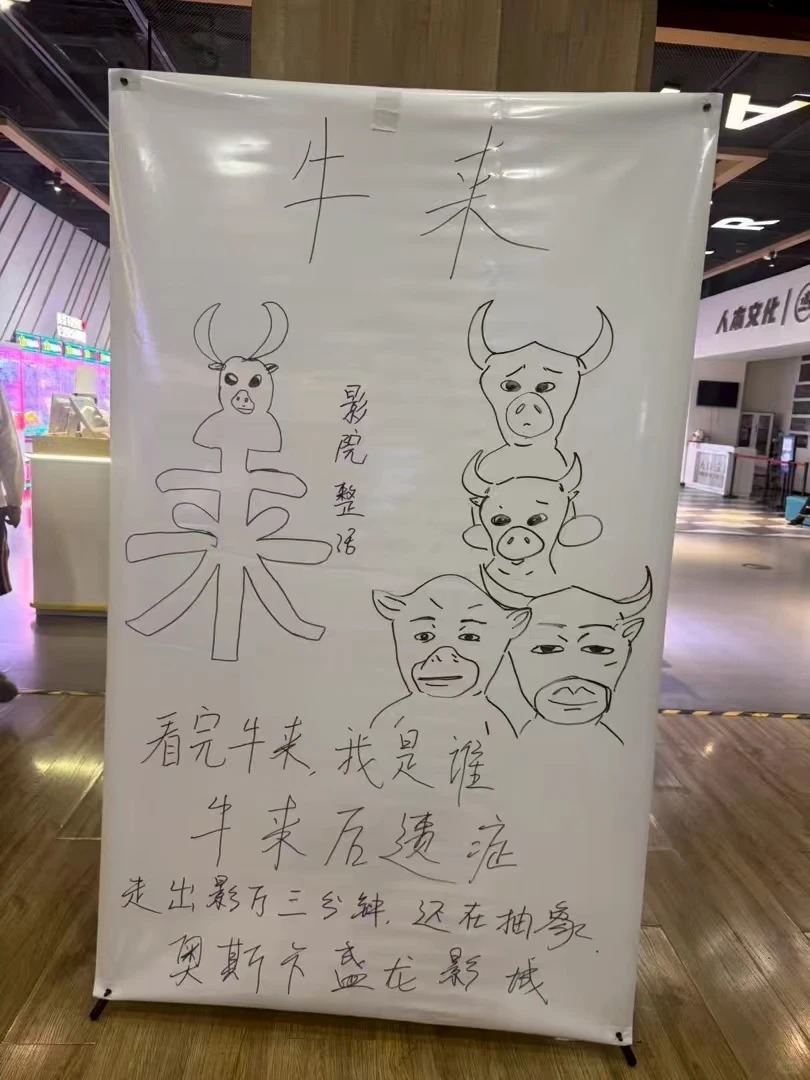 牛来
影院整活
看完牛来,我是谁
牛来后遗症
走出影厅三分钟,还在抽象.
奥斯卡盛龙影城
人本文化